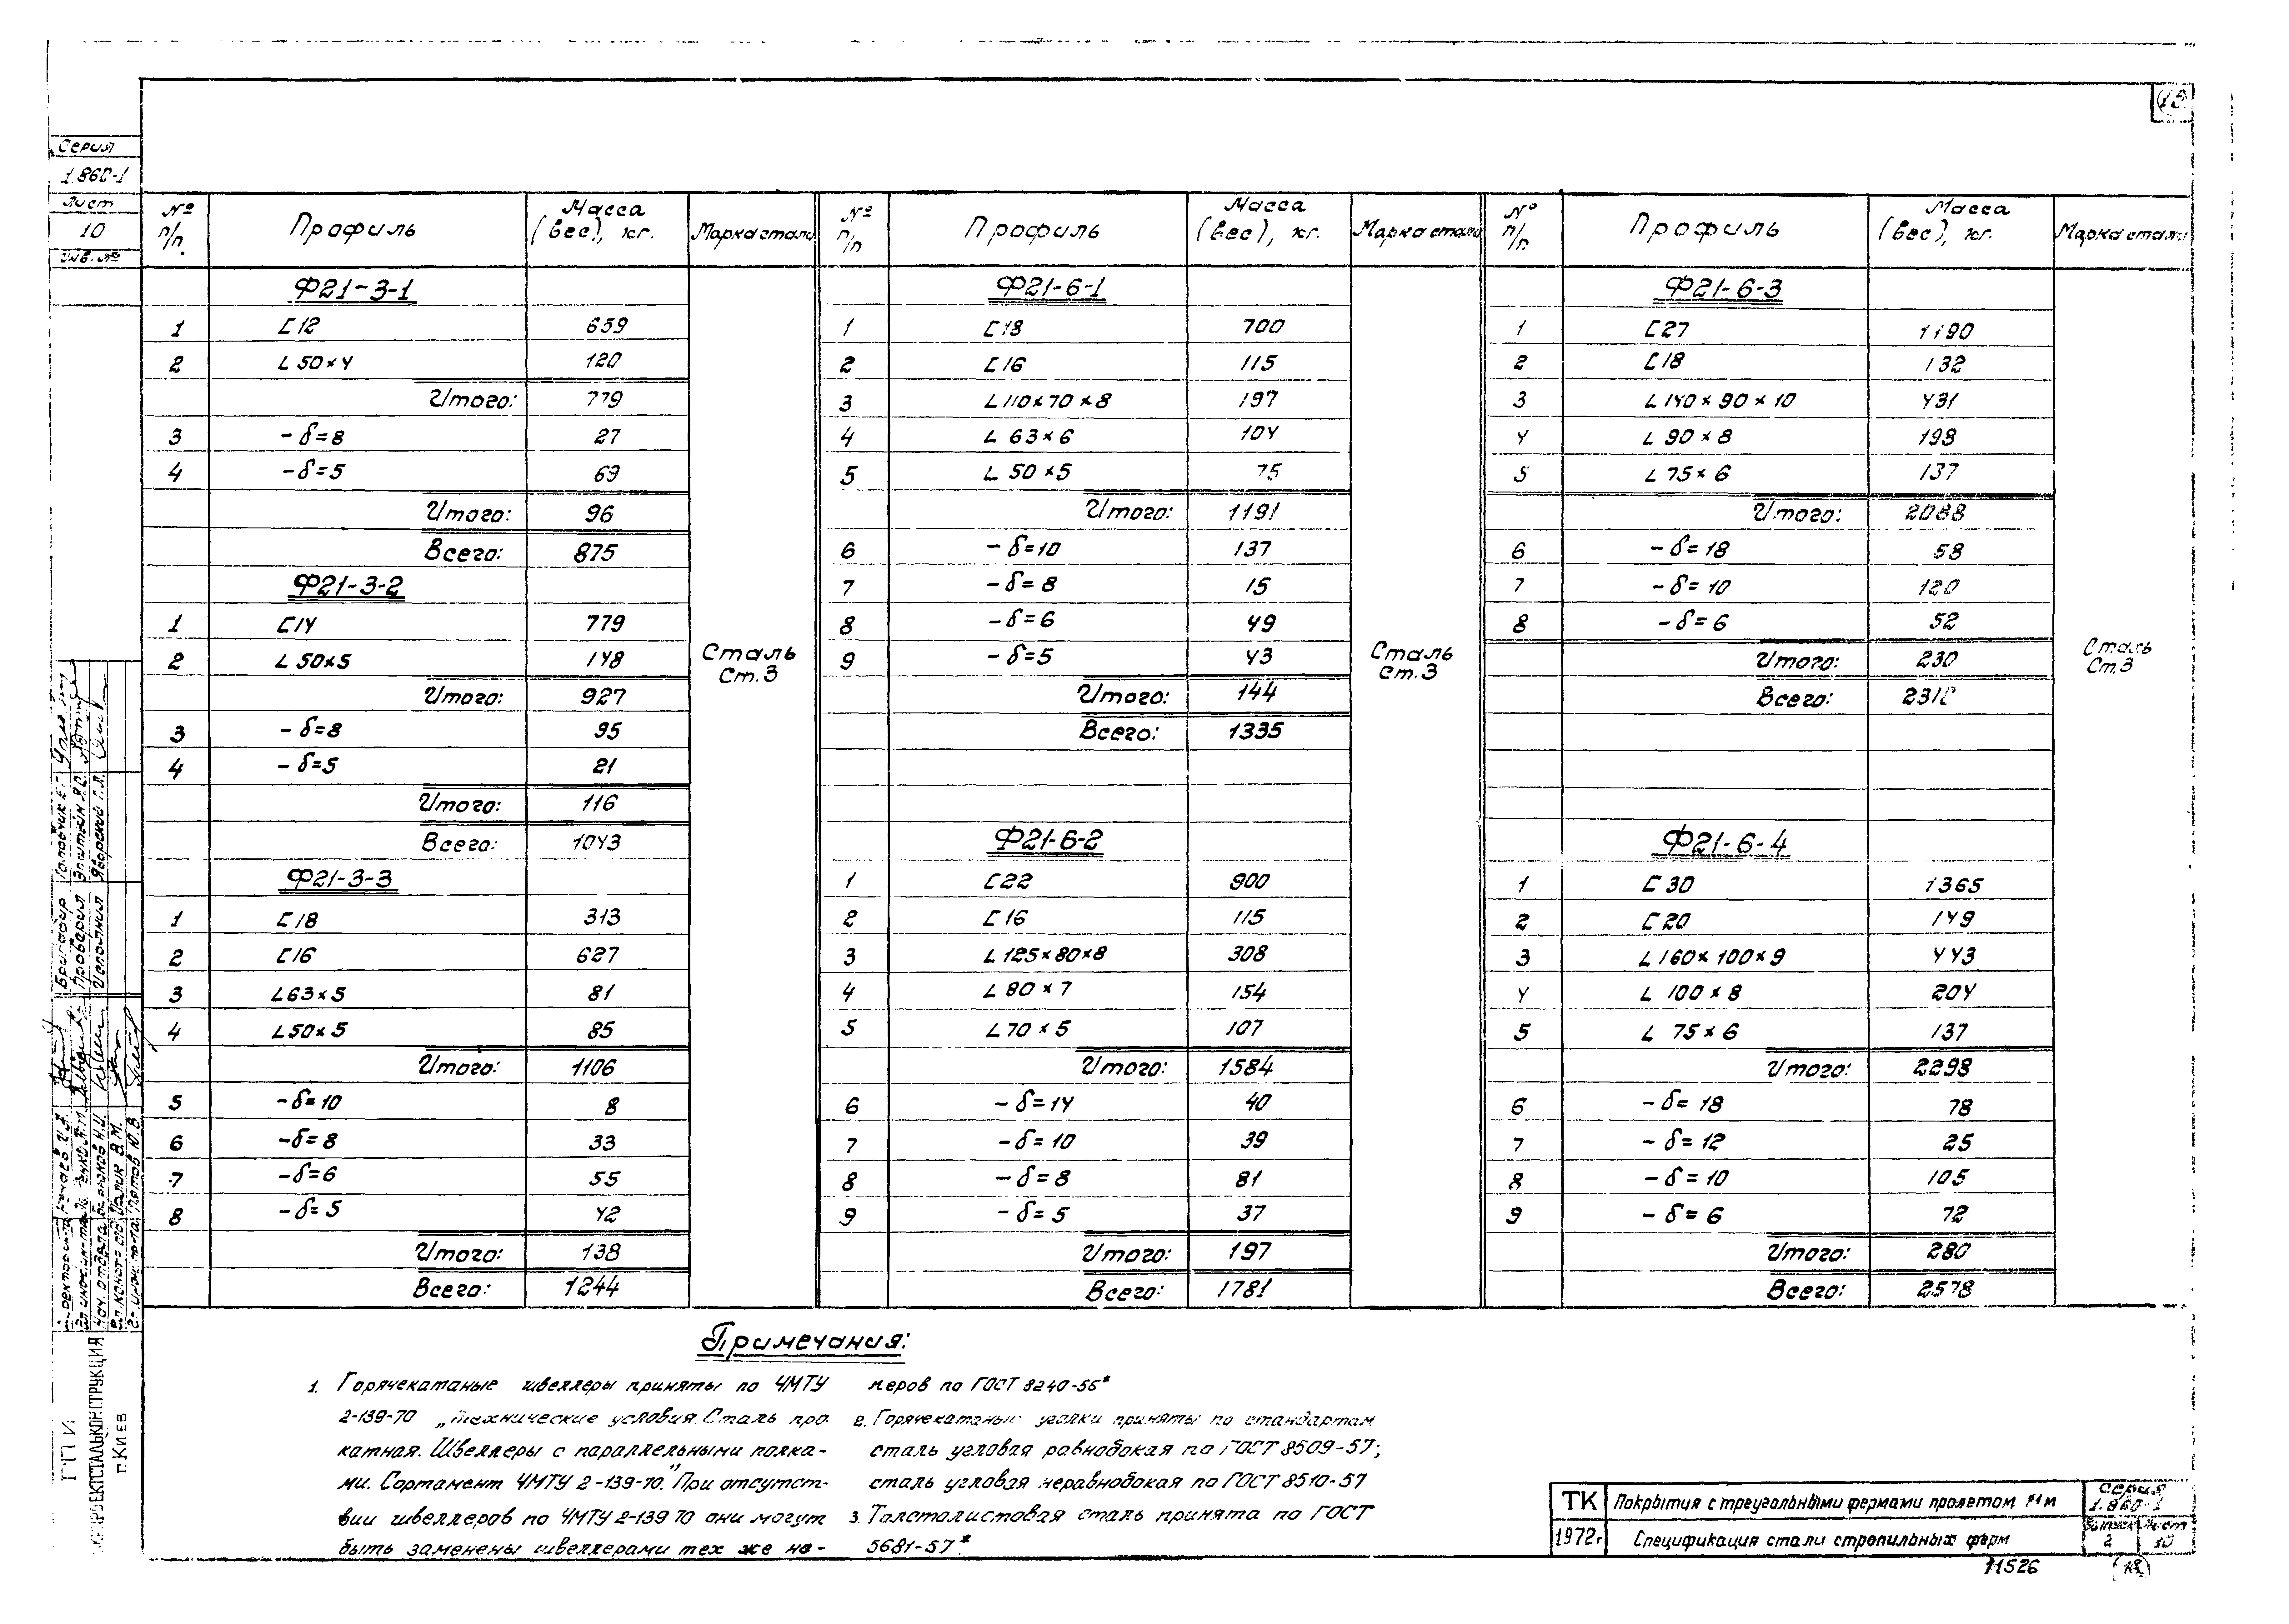 Серия
1.860-1
Лист
10
Инв. №
№ п/п Профиль Масса (вес), кг. Марка стали
Ф21-3-1
1 [12 659
2 L 50×4 120
Итого: 779
3 - δ=8 27
4 - δ=5 69
Итого: 96
Всего: 875
Ф21-3-2
1 [14 779
2 L 50×5 148
Итого: 927
3 - δ=8 95
4 - δ=5 21
Итого: 116
Всего: 1043
Ф21-3-3
1 [18 313
2 [16 627
3 L63×5 81
4 L50×5 85
Итого: 1106
5 - δ=10 8
6 - δ=8 33
7 - δ=6 55
8 - δ=5 42
Итого: 138
Всего: 1244
Сталь
Ст.3
№ п/п Профиль Масса (вес), кг. Марка стали
Ф21-6-1
1 [18 700
2 [16 115
3 L 110×70×8 197
4 L 63×6 104
5 L 50×5 75
Итого: 1191
6 - δ=10 137
7 - δ=8 15
8 - δ=6 49
9 - δ=5 43
Итого: 144
Всего: 1335
Ф21-6-2
1 [22 900
2 [16 115
3 L 125×80×8 308
4 L 80×7 154
5 L 70×5 107
Итого: 1584
6 - δ=14 40
7 - δ=10 39
8 - δ=8 81
9 - δ=5 37
Итого: 197
Всего: 1781
Сталь
Ст.3
№ п/п Профиль Масса (вес), кг. Марка стали
Ф21-6-3
1 [27 1190
2 [18 132
3 L 140×90×10 431
4 L 90×8 198
5 L 75×6 137
Итого: 2088
6 - δ=18 58
7 - δ=10 120
8 - δ=6 52
Итого: 230
Всего:
Ф21-6-4
1 [30 1365
2 [20 149
3 L 160×100×9 443
4 L 100×8 204
5 L 75×6 137
Итого: 2298
6 - δ=18 78
7 - δ=12 25
8 - δ=10 105
9 - δ=6 72
Итого: 280
Всего: 2578
Сталь
Ст.3
Примечания:
1. Горячекатаные швеллеры приняты по ЧМТУ
2-139-70 „Технические условия. Сталь про
катная. Швеллеры с параллельными полка-
ми. Сортамент ЧМТУ 2-139-70." При отсутст-
вии швеллеров по ЧМТУ 2-139 70 они могут
быть заменены швеллерами тех же но-
меров по ГОСТ 8240-56*
2. Горячекатаные уголки приняты по стандартам
сталь угловая равнобокая по ГОСТ 8509-57;
сталь угловая неравнобокая по ГОСТ 8510-57
3. Толстолистовая сталь принята по ГОСТ
5681-57*.
Бригадир
Проверил
Исполнил
Эпштейн
Яворский
ГПИ
УКРПРОЕКТСТАЛЬКОНСТРУКЦИЯ
г. Киев
ТК Покрытия с треугольными фермами пролетом 21 м Серия 1.860-1
1972г Спецификация стали стропильных ферм Выпуск 2 Лист 10
11526